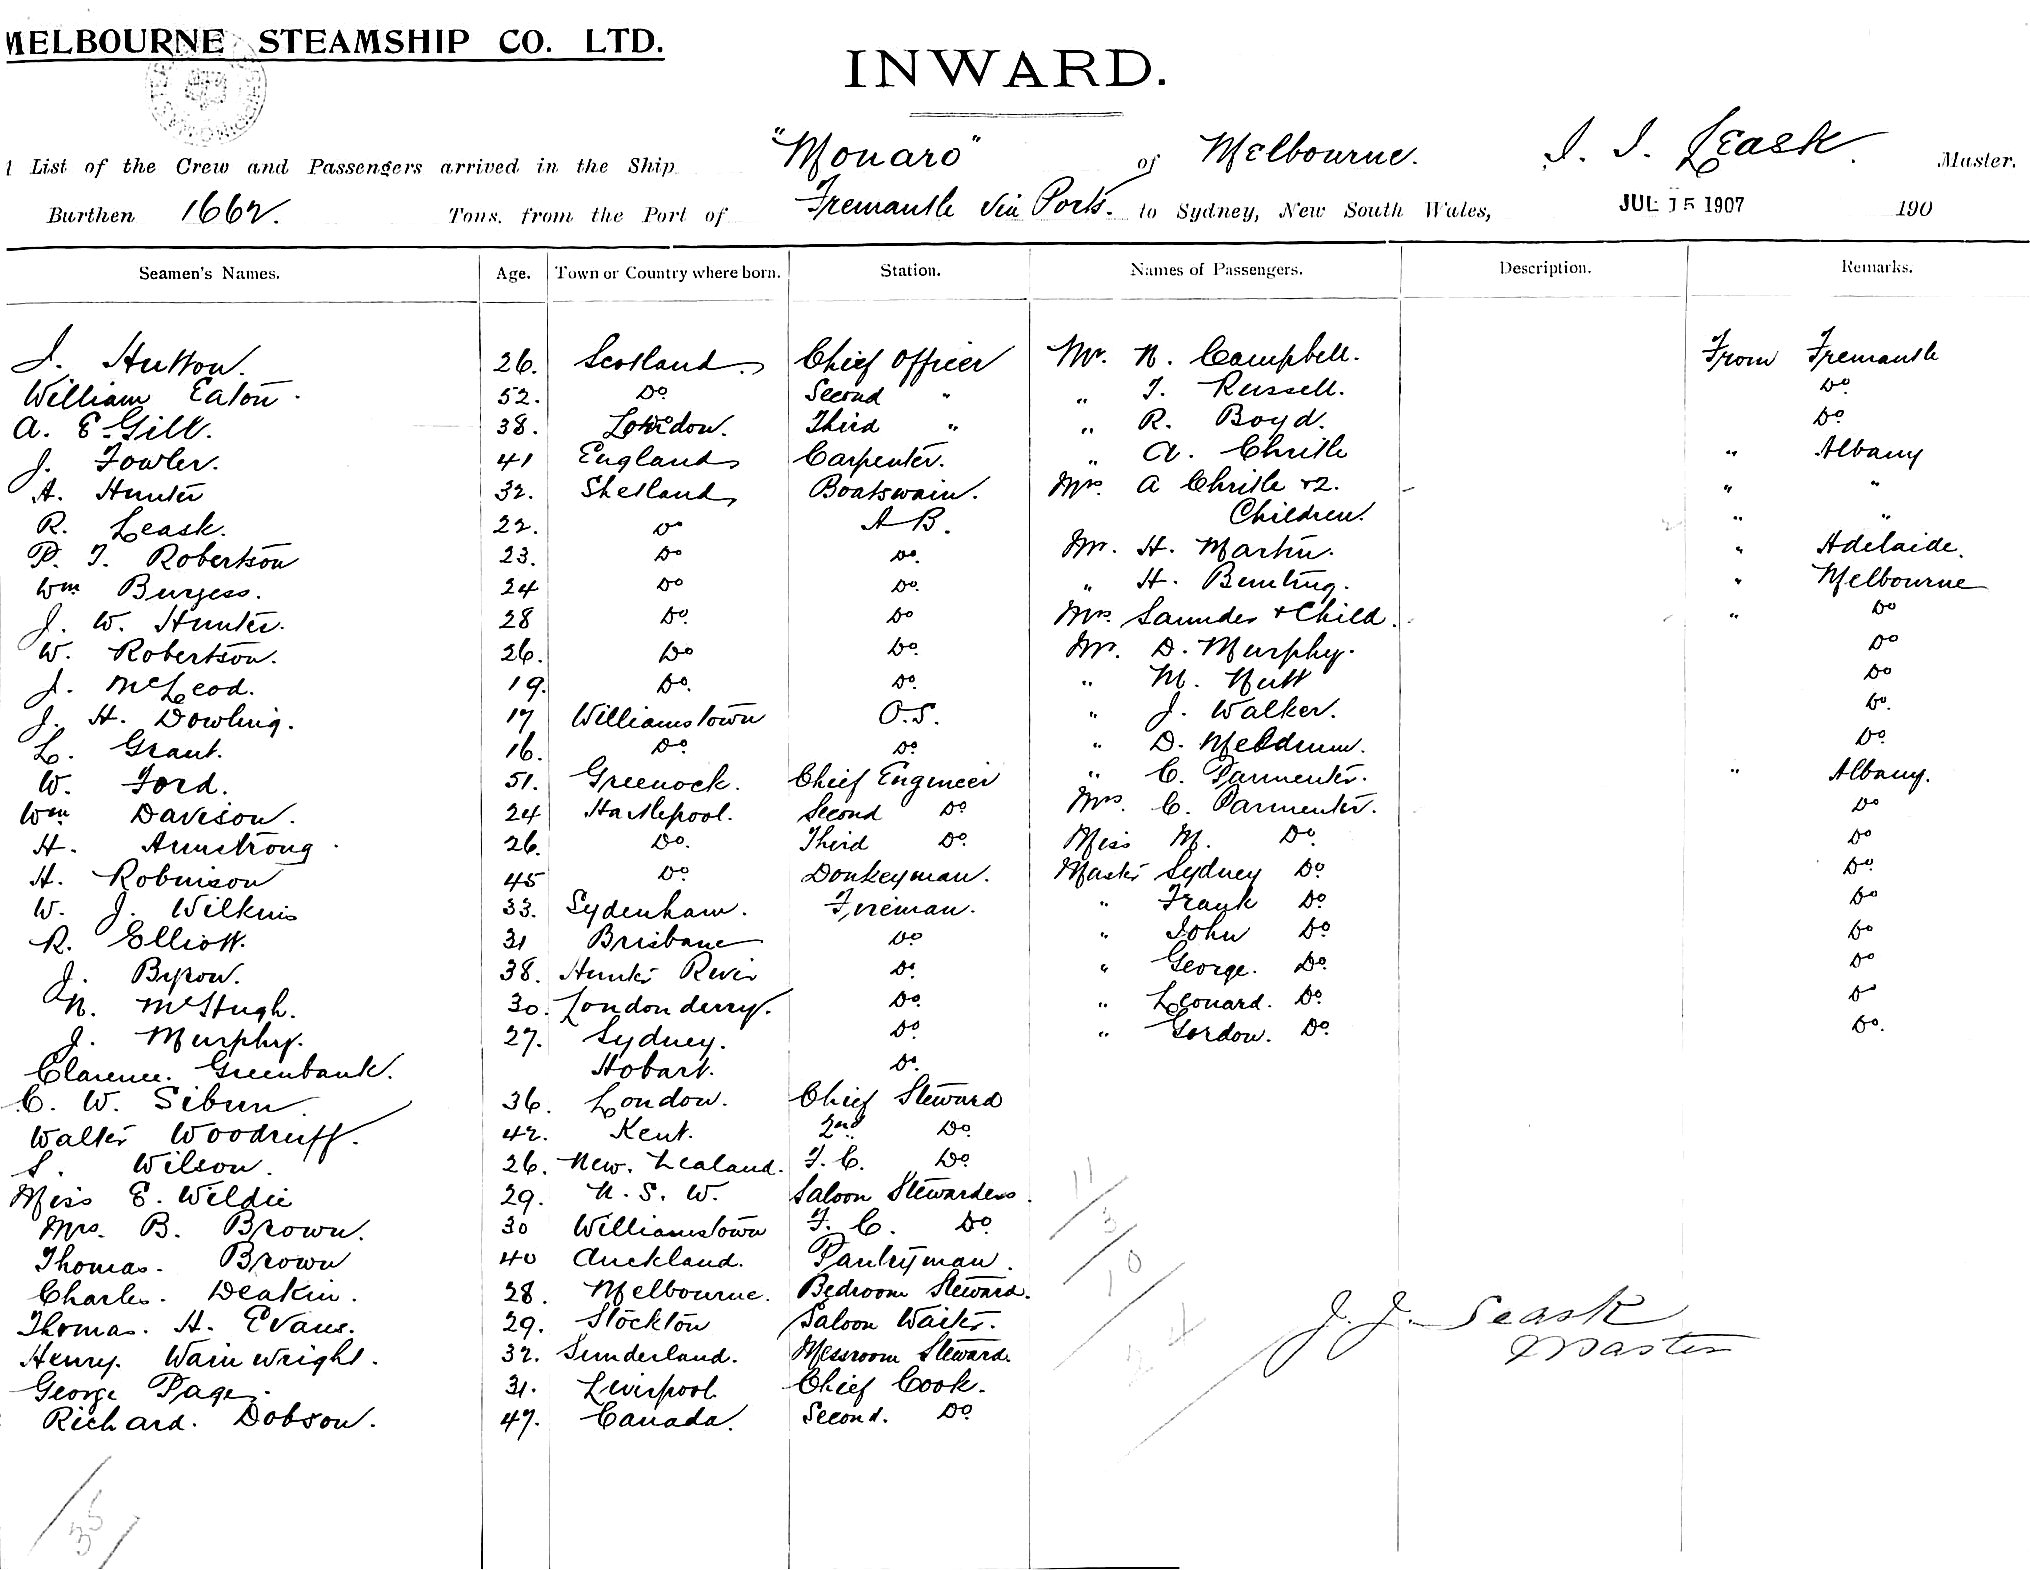 MELBOURNE STEAMSHIP CO. LTD.
INWARD.
List of the Crew and Passengers arrived in the Ship "Monaro" of Melbourne. J. J. Leask. Master.
Burthen 1662. Tons. from the Port of Fremantle via Ports. to Sydney, New South Wales, JUL 15 1907 190
Seamen's Names. Age. Town or Country where born. Station. Names of Passengers. Description. Remarks.
J. Hutton. 26. Scotland Chief Officer Mr. N. Campbell. From Fremantle
William Eaton. 52. Do. Second " " T. Russell. Do.
A. E. Gill. 38. London. Third " " R. Boyd. Do.
J. Fowler. 41 England Carpenter. " A. Christle " Albany
A. Hunter 32. Shetland Boatswain. Mrs. A Christle & 2. " "
R. Leask. 22. Do A B. Children. " "
P. T. Robertson 23. Do Do. Mr. H. Martin. " Adelaide.
Wm Burgess. 24 Do Do. " H. Bunting. " Melbourne
J. W. Hunter. 28 Do. Do Mrs. Saunder & Child. " Do
W. Robertson. 26. Do Do. Mr. D. Murphy. Do
J. McLeod. 19. Do. Do. " M. Nutt Do
J. H. Dowling. 17 Williamstown O.S. " J. Walker. Do.
L. Grant. 16. Do. Do. " D. Meldrum. Do.
W. Ford. 51. Greenock. Chief Engineer " C. Parmenter. " Albany.
Wm Davison. 24 Hartlepool. Second Do Mrs. C. Parmenter. Do
H. Armstrong. 26. Do. Third Do. Miss M. Do. Do
H. Robinson 45 Do. Donkeyman. Master Sydney Do. Do.
W. J. Wilkins 33. Sydenham. Fireman. " Frank Do. Do
R. Elliott. 31 Brisbane Do " John Do Do
J. Byron. 38. Hunter River Do. " George. Do. Do
N. McHugh. 30. Londonderry. Do. " Leonard. Do. Do
J. Murphy. 27. Sydney. Do. " Gordon. Do. Do.
Clarence. Greenbank. Hobart. Do.
C. W. Sibun. 36. London. Chief Steward
Walter Woodruff. 42. Kent. 2nd Do.
S. Wilson. 26. New. Zealand. F. C. Do.
Miss E. Weldie 29. N. S. W. Saloon Stewardess.
Mrs. B. Brown. 30 Williamstown F. C. Do.
Thomas. Brown 40 Auckland. Pantryman.
Charles. Deakin. 28. Melbourne. Bedroom Steward.
Thomas. H. Evans. 29. Stockton Saloon Waiter. J. J. Leask
Henry. Wainwright. 32. Sunderland. Messroom Steward. Master
George Page. 31. Liverpool Chief Cook.
Richard. Dobson. 47. Canada. Second. Do.
35